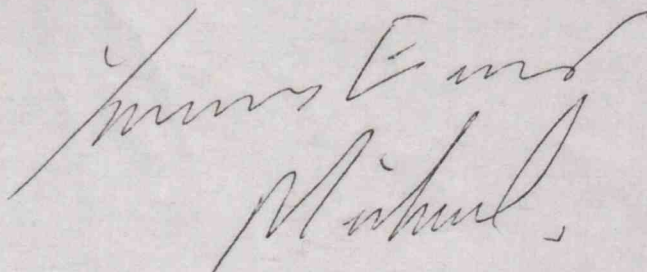 Yours Ever
Michael.